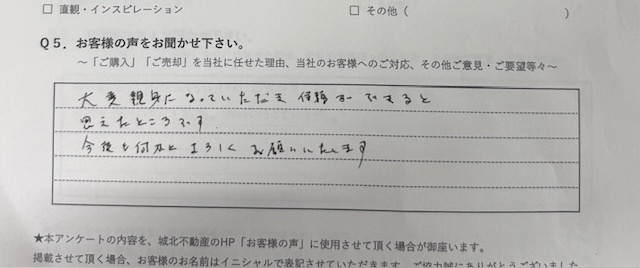 □ 直観・インスピレーション □ その他（ ）
Q5．お客様の声をお聞かせ下さい。
～「ご購入」「ご売却」を当社に任せた理由、当社のお客様へのご対応、その他ご意見・ご要望等々～
大変親身になっていただき 信頼ができると
思えたところです
今後も何かと よろしく お願いいたします
★本アンケートの内容を、城北不動産のHP「お客様の声」に使用させて頂く場合が御座います。
掲載させて頂く場合、お客様のお名前はイニシャルで表記させていただきます。ご協力誠にありがとうございました